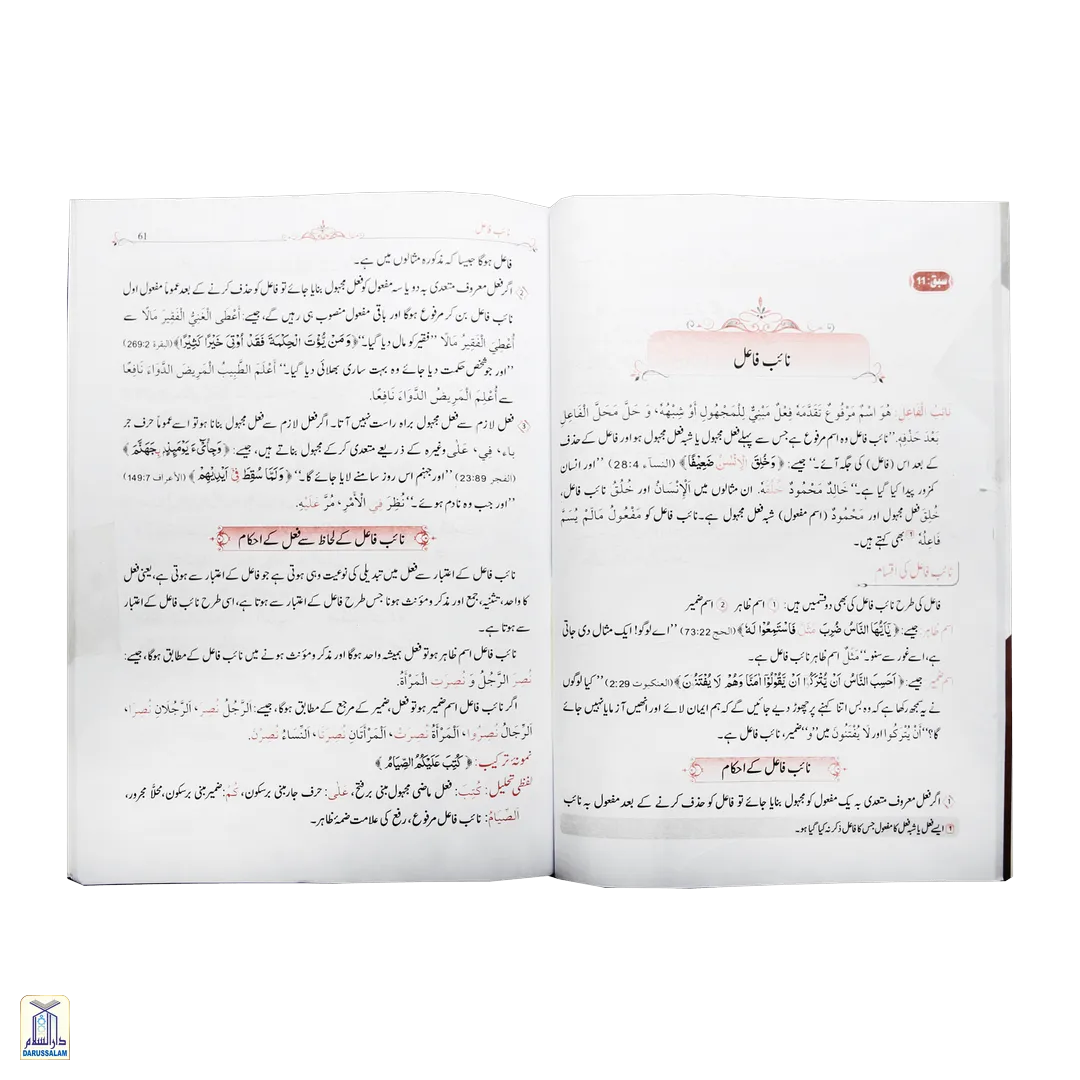 سبق: 11
نائب فاعل
نائبُ الْفَاعِلِ: هُوَ اسْمٌ مَرْفُوعٌ تَقَدَّمَهٗ فِعْلٌ مَبْنِيٌّ لِلْمَجْهُولِ أَوْ شِبْهُهٗ، وَ حَلَّ مَحَلَّ الْفَاعِلِ
بَعْدَ حَذْفِهٖ. ’’نائب فاعل وہ اسم مرفوع ہے جس سے پہلے فعل مجہول یا شبہ فعل مجہول ہو اور فاعل کے حذف
کے بعد اس (فاعل) کی جگہ آئے۔‘‘ جیسے: ﴿وَخُلِقَ الْاِنْسٰنُ ضَعِيْفًا﴾ (النسآء 28:4) ’’اور انسان
کمزور پیدا کیا گیا ہے۔‘‘ خَالِدٌ مَحْمُودٌ خُلُقُهٗ. ان مثالوں میں اَلْإِنْسَانُ اور خُلُقُ نائب فاعل،
خُلِقَ فعل مجہول اور مَحْمُودٌ (اسم مفعول) شبہ فعل مجہول ہے۔ نائب فاعل کو مَفْعُولُ مَالَمْ يُسَمَّ
فَاعِلُهٗ ¹ بھی کہتے ہیں۔
نائب فاعل کی اقسام
فاعل کی طرح نائب فاعل کی بھی دو قسمیں ہیں: ① اسم ظاہر ② اسم ضمیر
اسم ظاہر جیسے: ﴿يٰٓاَيُّهَا النَّاسُ ضُرِبَ مَثَلٌ فَاسْتَمِعُوْا لَهٗ﴾ (الحج 73:22) ’’اے لوگو! ایک مثال دی جاتی
ہے، اسے غور سے سنو۔‘‘ مَثَلٌ اسم ظاہر نائب فاعل ہے۔
اسم ضمیر جیسے: ﴿اَحَسِبَ النَّاسُ اَنْ يُّتْرَكُوْٓا اَنْ يَّقُوْلُوْٓا اٰمَنَّا وَهُمْ لَا يُفْتَنُوْنَ﴾ (العنكبوت 2:29) ’’کیا لوگوں
نے یہ سمجھ رکھا ہے کہ وہ بس اتنا کہنے پر چھوڑ دیے جائیں گے کہ ہم ایمان لائے اور انھیں آزمایا نہیں جائے
گا؟‘‘ أَنْ يُتْرَكُوا اور لَا يُفْتَنُونَ میں ’’و‘‘ ضمیر، نائب فاعل ہے۔
نائب فاعل کے احکام
① اگر فعل معروف متعدی بہ یک مفعول کو مجہول بنایا جائے تو فاعل کو حذف کرنے کے بعد مفعول بہ نائب
¹ ایسے فعل یا شبہ فعل کا مفعول جس کا فاعل ذکر نہ کیا گیا ہو۔
نائب فاعل 61
فاعل ہوگا جیسا کہ مذکورہ مثالوں میں ہے۔
② اگر فعل معروف متعدی بہ دو یا سہ مفعول کو فعل مجہول بنایا جائے تو فاعل کو حذف کرنے کے بعد عموماً مفعول اول
نائب فاعل بن کر مرفوع ہوگا اور باقی مفعول منصوب ہی رہیں گے، جیسے: أَعْطَى الْغَنِيُّ الْفَقِيرَ مَالًا سے
أُعْطِيَ الْفَقِيرُ مَالًا ’’فقیر کو مال دیا گیا۔‘‘ ﴿وَمَنْ يُّؤْتَ الْحِكْمَةَ فَقَدْ اُوْتِيَ خَيْرًا كَثِيْرًا﴾ (البقرة 269:2)
’’اور جو شخص حکمت دیا جائے وہ بہت ساری بھلائی دیا گیا۔‘‘ أَعْلَمَ الطَّبِيبُ الْمَرِيضَ الدَّوَاءَ نَافِعًا
سے أُعْلِمَ الْمَرِيضُ الدَّوَاءَ نَافِعًا.
③ فعل لازم سے فعل مجہول براہ راست نہیں آتا۔ اگر فعل لازم سے فعل مجہول بنانا ہو تو اسے عموماً حرف جر
باء، فِي، عَلٰى وغیرہ کے ذریعے متعدی کرکے مجہول بناتے ہیں، جیسے: ﴿وَجِايْٓءَ يَوْمَىِٕذٍۭ بِجَهَنَّمَ﴾
(الفجر 23:89) ’’اور جہنم اس روز سامنے لایا جائے گا۔‘‘ ﴿وَلَمَّا سُقِطَ فِيْٓ اَيْدِيْهِمْ﴾ (الأعراف 149:7)
’’اور جب وہ نادم ہوئے۔‘‘ نُظِرَ فِي الْأَمْرِ، مُرَّ عَلَيْهِ.
نائب فاعل کے لحاظ سے فعل کے احکام
نائب فاعل کے اعتبار سے فعل میں تبدیلی کی نوعیت وہی ہوتی ہے جو فاعل کے اعتبار سے ہوتی ہے، یعنی فعل
کا واحد، تثنیہ، جمع اور مذکر و مؤنث ہونا جس طرح فاعل کے اعتبار سے ہوتا ہے، اسی طرح نائب فاعل کے اعتبار
سے ہوتا ہے۔
نائب فاعل اسم ظاہر ہو تو فعل ہمیشہ واحد ہوگا اور مذکر و مؤنث ہونے میں نائب فاعل کے مطابق ہوگا، جیسے:
نُصِرَ الرَّجُلُ وَ نُصِرَتِ الْمَرْأَةُ.
اگر نائب فاعل اسم ضمیر ہو تو فعل، ضمیر کے مرجع کے مطابق ہوگا، جیسے: اَلرَّجُلُ نُصِرَ، اَلرَّجُلَانِ نُصِرَا،
اَلرِّجَالُ نُصِرُوا، اَلْمَرْأَةُ نُصِرَتْ، اَلْمَرْأَتَانِ نُصِرَتَا، اَلنِّسَاءُ نُصِرْنَ.
نمونۂ ترکیب: ﴿كُتِبَ عَلَيْكُمُ الصِّيَامُ﴾
لفظی تحلیل: كُتِبَ: فعل ماضی مجہول مبنی برفتح، عَلٰى: حرف جار مبنی برسکون، كُمْ: ضمیر مبنی برسکون، محلًّا مجرور،
اَلصِّيَامُ: نائب فاعل مرفوع، رفع کی علامت ضمۂ ظاہر۔
دارالسلام
DARUSSALAM